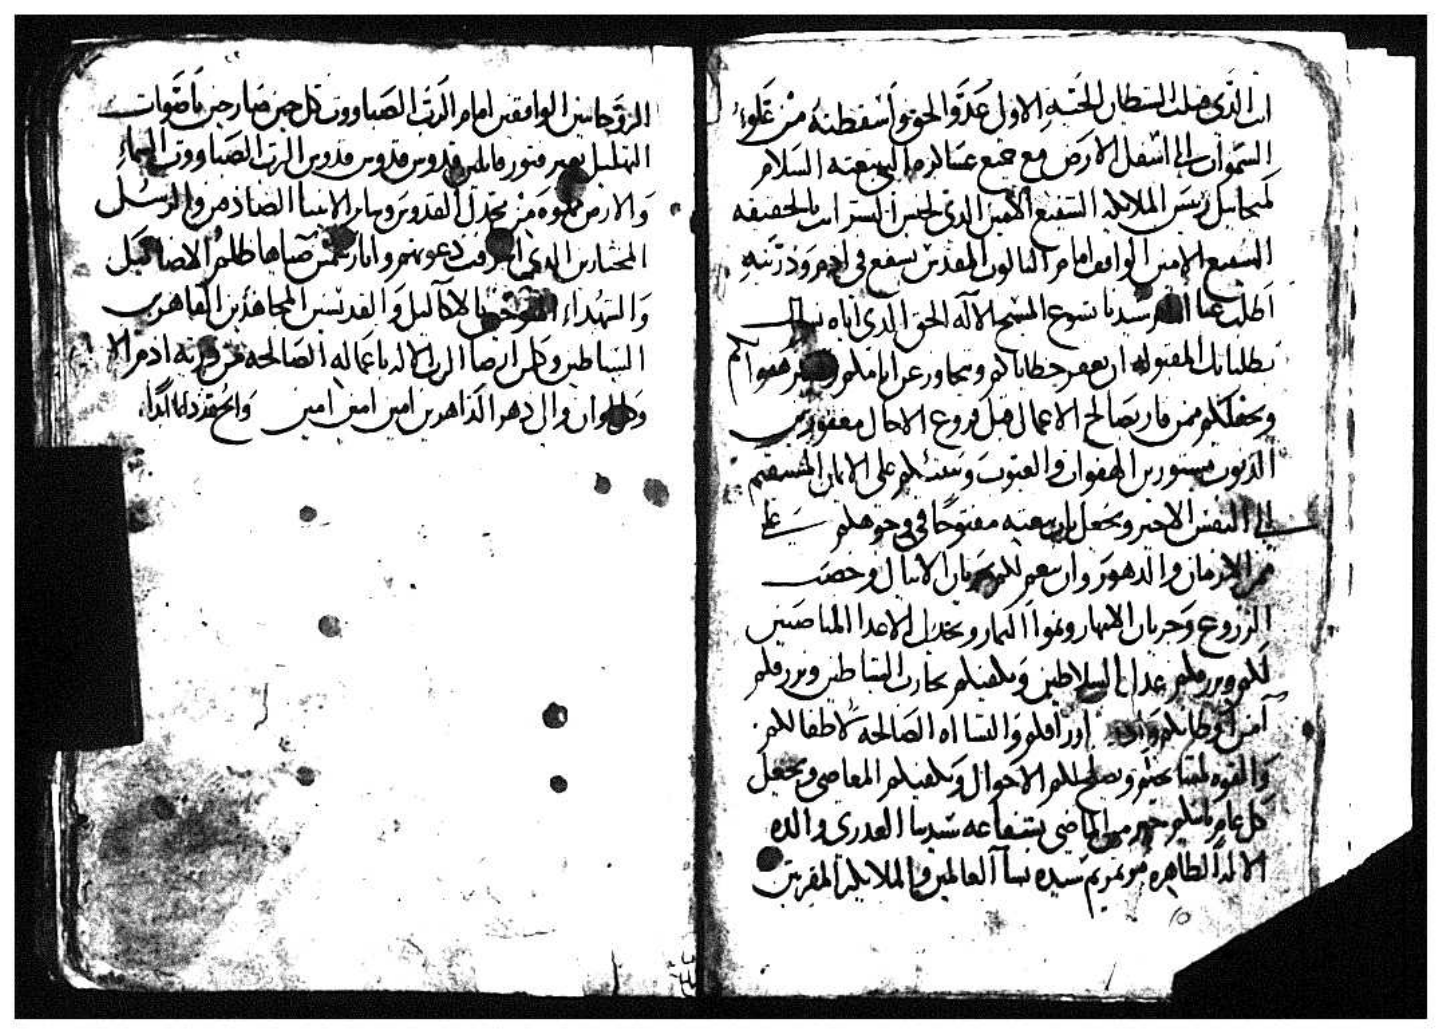 انت الذي قتلت الشيطان الحية الاول عدو الحق واسقطته من علو
السموات الى اسفل الارض مع جميع عساكره البهيمية السلام
لميخاييل رييس الملايكه الشفيع الامين الذي لجنس البشر انت بالحقيقه
الشفيع الامين الواقف امام الثالوت المقدس يشفع في ادم وذريته
اطلب عنا سيدنا يسوع المسيح الاله الحق الذي اياه نسال
بطلباتك المقبوله ان يغفر خطاياكم ويتجاوز عن اثامكم هفواتكم
ويجعلكم ممن فاز بصالح الاعمال قبل فروغ الاجال مغفورين
الذنوب مستورين الهفوات والعيوب ويثبتكم على الايمان المستقيم
الى النفس الاخير ويجعل باب بيعته مفتوحا في وجوهكم على
ممر الازمان والدهور وان ينعم لكم بجريان الانيال وخصب
الزروع وجريان الانهار ونموا الثمار ويخذل الاعدا المناصبين
لكم ويرزقكم عدل السلاطين ويكفيكم تجارب الشياطين ويرزقكم
امن اوطانكم ارزاقكم والنشااه الصالحه لاطفالكم
والقوه لمشايخكم ويصلح لكم الاحوال ويكفيكم المعاصي ويجعل
كل عام ياتيكم خير من الماضي بشفاعه سيدتنا العدري والده
الاله الطاهره مرتمريم سيده نسآ العالمين والملايكه المقربين
الروحانيين الواقفين امام الرب الصباووت كل حين صارخين باصوات
التهليل بغير فتور قايلين قدوس قدوس قدوس الرب الصباووت السماء
والارض مملوه من مجدك القدوس وساير الانبيا الصادقين والرسل
المختارين الذي دعوتهم وانار شمس ضياها ظلم الاضاليل
والشهداء بالاكاليل والقديسين المجاهدين القاهرين
الشياطين وكل من ارضا الرب الاله باعماله الصالحه من ذريه ادم الا
وكل اوان والى دهر الداهرين امين امين امين والمجد دايما ابدا